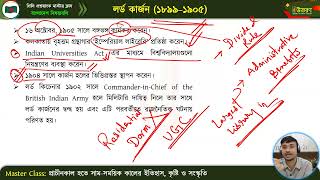 লর্ড কার্জন (১৮৯৯-১৯০৫)
১৬ অক্টোবর, ১৯০৫ সালে বঙ্গভঙ্গ কার্যকর করেন।
কলকাতায় বৃহত্তম গ্রন্থাগার ইম্পেরিয়াল লাইব্রেরি প্রতিষ্ঠা করেন।
Indian Universities Act এর মাধ্যমে বিশ্ববিদ্যালয়গুলো
নিয়ন্ত্রণের ব্যবস্থা করেন।
১৯০৪ সালে কার্জন হলের ভিত্তিপ্রস্তর স্থাপন করেন।
লর্ড কিচেনার ১৯০২ সালে Commander-in-Chief of the
British Indian Army হলে মিলিটারি দায়িত্ব নিলে তার সাথে
লর্ড কার্জনের দ্বন্দ্ব হয় এবং এটি পরবর্তীতে রাজনৈতিক ঘটনায়
পরিণত হয়।
Divide & Rule
Administrative Benefits
Largest Library in
Residential Dorm
UGC
Master Class: প্রাচীনকাল হতে সাম-সময়িক কালের ইতিহাস, কৃষ্টি ও সংস্কৃতি